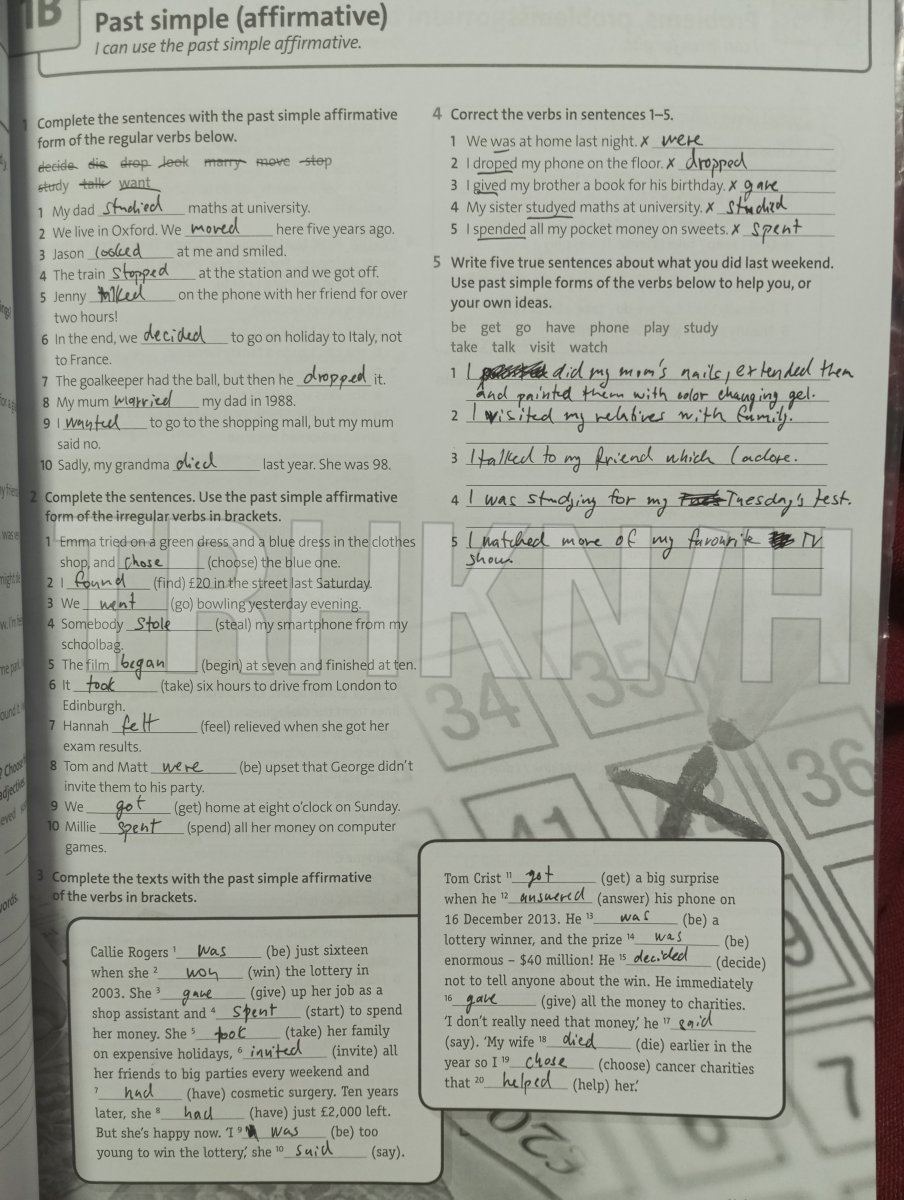 1B
Past simple (affirmative)
I can use the past simple affirmative.
1 Complete the sentences with the past simple affirmative
form of the regular verbs below.
decide die drop look marry move stop
study talk want
1 My dad studied maths at university.
2 We live in Oxford. We moved here five years ago.
3 Jason looked at me and smiled.
4 The train stopped at the station and we got off.
5 Jenny talked on the phone with her friend for over
two hours!
6 In the end, we decided to go on holiday to Italy, not
to France.
7 The goalkeeper had the ball, but then he dropped it.
8 My mum married my dad in 1988.
9 I wanted to go to the shopping mall, but my mum
said no.
10 Sadly, my grandma died last year. She was 98.
2 Complete the sentences. Use the past simple affirmative
form of the irregular verbs in brackets.
1 Emma tried on a green dress and a blue dress in the clothes
shop, and chose (choose) the blue one.
2 I found (find) £20 in the street last Saturday.
3 We went (go) bowling yesterday evening.
4 Somebody stole (steal) my smartphone from my
schoolbag.
5 The film began (begin) at seven and finished at ten.
6 It took (take) six hours to drive from London to
Edinburgh.
7 Hannah felt (feel) relieved when she got her
exam results.
8 Tom and Matt were (be) upset that George didn't
invite them to his party.
9 We got (get) home at eight o'clock on Sunday.
10 Millie spent (spend) all her money on computer
games.
3 Complete the texts with the past simple affirmative
of the verbs in brackets.
Callie Rogers 1 was (be) just sixteen
when she 2 won (win) the lottery in
2003. She 3 gave (give) up her job as a
shop assistant and 4 spent (start) to spend
her money. She 5 took (take) her family
on expensive holidays, 6 invited (invite) all
her friends to big parties every weekend and
7 had (have) cosmetic surgery. Ten years
later, she 8 had (have) just £2,000 left.
But she's happy now. 'I 9 was (be) too
young to win the lottery,' she 10 said (say).
Tom Crist 11 got (get) a big surprise
when he 12 answered (answer) his phone on
16 December 2013. He 13 was (be) a
lottery winner, and the prize 14 was (be)
enormous – $40 million! He 15 decided (decide)
not to tell anyone about the win. He immediately
16 gave (give) all the money to charities.
'I don't really need that money,' he 17 said
(say). 'My wife 18 died (die) earlier in the
year so I 19 chose (choose) cancer charities
that 20 helped (help) her.'
4 Correct the verbs in sentences 1–5.
1 We was at home last night. ✗ were
2 I droped my phone on the floor. ✗ dropped
3 I gived my brother a book for his birthday. ✗ gave
4 My sister studyed maths at university. ✗ studied
5 I spended all my pocket money on sweets. ✗ spent
5 Write five true sentences about what you did last weekend.
Use past simple forms of the verbs below to help you, or
your own ideas.
be get go have phone play study
take talk visit watch
1 I did my mom's nails, extended them
and painted them with color changing gel.
2 I visited my relatives with family.
3 I talked to my friend which I adore.
4 I was studying for my Tuesday's test.
5 I watched more of my favourite TV
show.
HRHKN/H
34 35 36
41 42
9
6 7